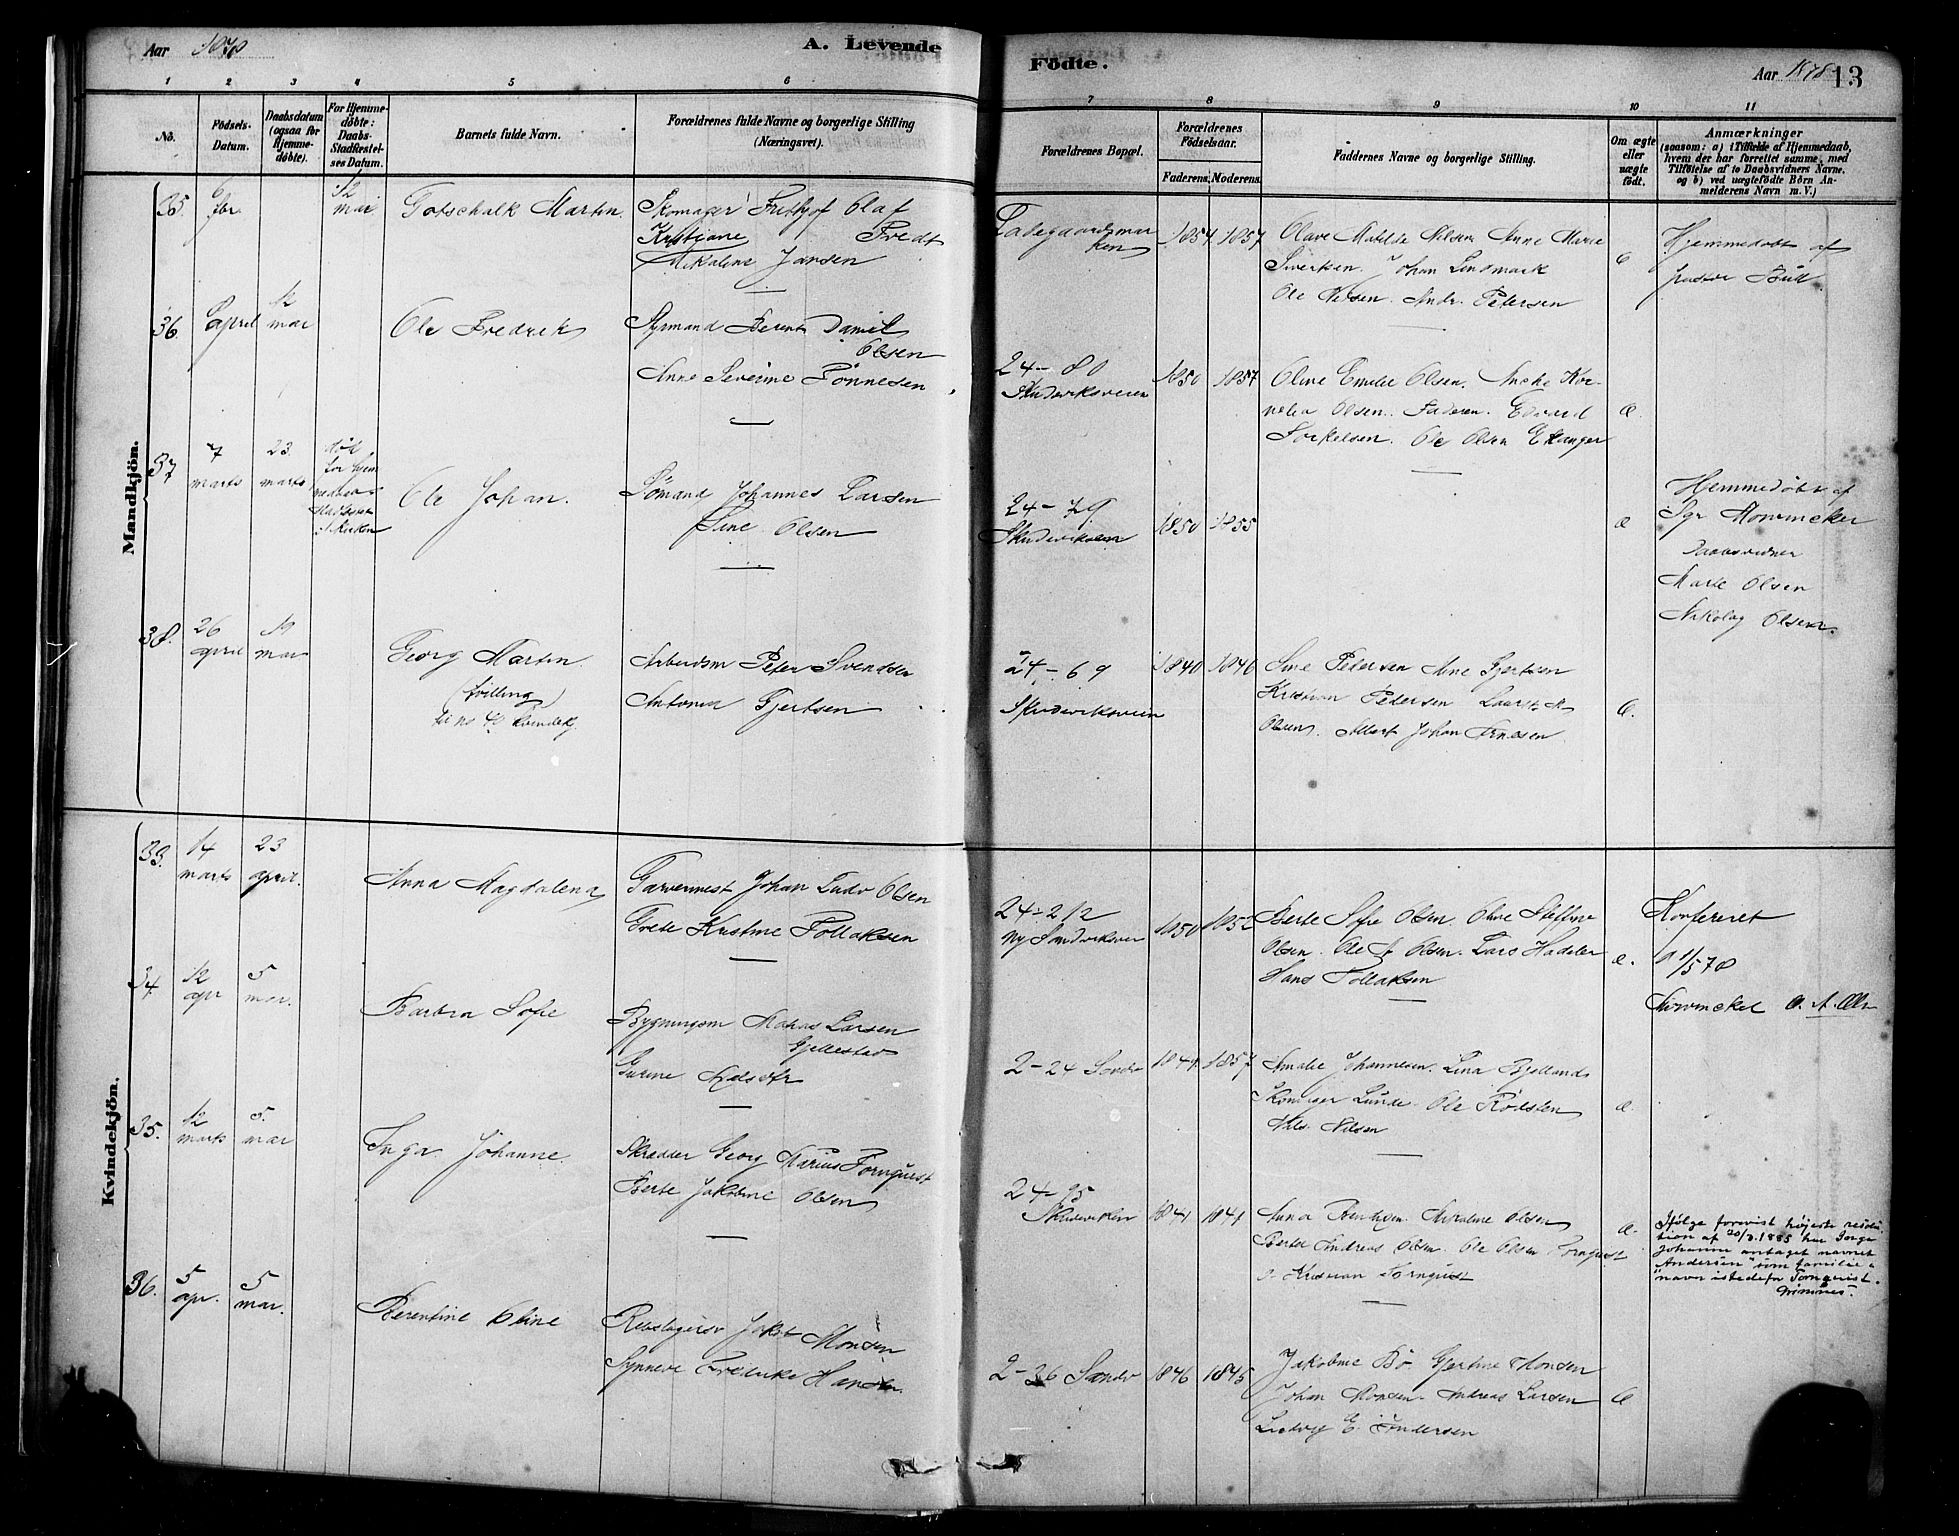 Aar 1878
A. Levende
Födte.
Aar 1878
13
1 2 3 4 5 6 7 8 9 10 11
No.
Födsels-Datum.
Daabsdatum (ogsaa for Hjemme-döbte).
For Hjemme-döbte: Daabs-Stadfæstel-ses Datum.
Barnets fulde Navn.
Forældrenes fulde Navne og borgerlige Stilling (Næringsvei).
Forældrenes Bopæl.
Forældrenes Födselsaar.
Faderens. Moderens.
Faddernes Navne og borgerlige Stilling.
Om ægte eller uægte födt.
Anmærkninger (saasom: a) i Tilfælde af Hjemmedaab, hvem der har forrettet samme, med Tilföielse af to Daabsvidners Navne, og b) ved uægtefödte Börn An-melderens Navn m. V.)
Mandkjön.
35. 6 fbr 12 mai Gotschalk Martin Skomager Frithjof Olaf
Kristiane Fredt
Mikaline Jansen
Ladegaardsmar
ken 1854 1857
Olave Matilde Nilsen Anne Marie
Siverksen. Johan Lindmark
Ole Nilsen. Andr. Petersen
Hjemmedøbt af
pastor Bull.
36. april 12 mai Ole Fredrik Styrmand Berent Daniel
Olsen
Anne Severine Tönnesen
24-80
Skudeviksveien 1850 1857
Oline Emilie Olsen. Anche Kor-
nelia Olsen. Faderen. Edvard
Torkelsen. Ole Olsen Ekanger
Æ
37 7 marts 23. marts
Ole Johan. Sömand Johannes Larsen
Line Olsen
24-79
Skudeviksvn 1850 1855
æ
Hjemmedöbt af
Jgr Mowinckel
Daabsvidner
Marte Olsen
Nikolay Olsen.
38. 26 april 19 mai Georg Martin
(tvilling)
til no 40 kvindekj.
Arbeidsm Peter Svendsen
Antonia Gjertsen
24-69
Skudeviksveien 1840 1846
Sine Petersen Ane Gjertsen
Kristian Petersen Laurits A
Olsen. Albert Johan Arnesen
Æ.
Kvindekjön.
33. 14 marts 23 april. Anna Magdalena Garvermest Johan Ludv Olsen
Grete Kristine Tollaksen
24-212
Ny Sandviksvei 1850 1852
Berte Sofie Olsen. Oline Steffine
Olsen. Ole A Olsen. Lars Hadeler
Hans Tollaksen
æ.
Konfereret
11/5 78
34. 12 apr 5 mai. Barbra Sofie Bygningsm Mathias Larsen
Gjellestad
Gurine
2-24 Sandv 1849 1857
Amalie Johannesen. Lina Bjelland
Skomager Lunde. Ole Rödsten
Nils Nilsen
æ.
35. 12 marts 5. mai Inga Johanne Skrædder Georg Marius Tornquist
Berte Jakobine Olsen
24-95
Skudeviken 1841 1841
Anna Bendixen Olsen
Bertel Andreas Olsen. Ole Olsen Tornquist
o Kristian Tornquist
æ.
Ifølge forevist højeste resolu-
tion af 20/3.1885 har Inga
Johanne antaget navnet
"Andersen" som familie-
navn istedefor Tornqvist.
36. 5 apr. 5 mai. Berentine Oline Rebslagersv Jakob Monsen
Synneve Fredrike Hansen
2-26 Sandv 1846 1845
Jakobine Bö Gjertine Monsen
Johan Monsen. Andreas Larsen
Ludvig E. Andersen
Æ